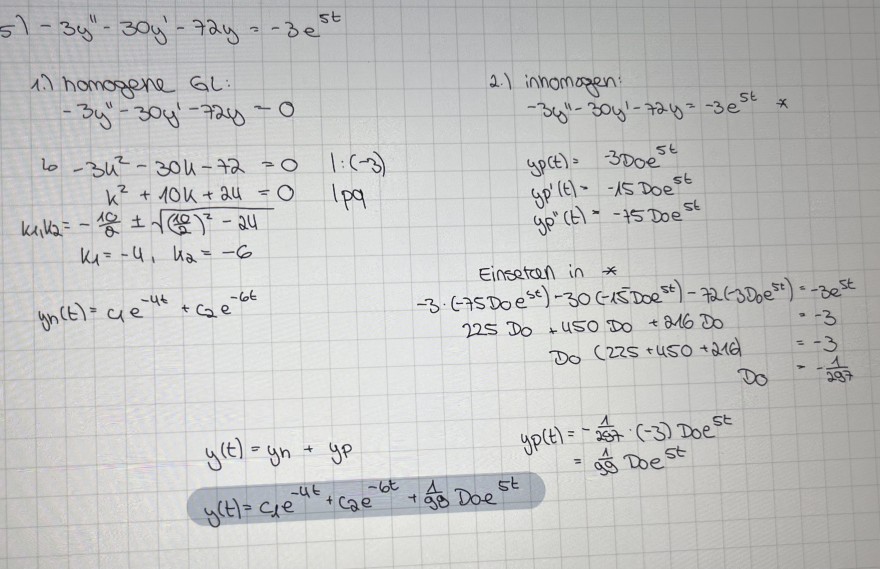 5) -3y'' - 30y' - 72y = -3e^5t
1.) homogene GL:
-3y'' - 30y' - 72y = 0
↳ -3k² - 30k - 72 = 0 |:(-3)
k² + 10k + 24 = 0 |pq
k1,k2 = -10/2 ± √((10/2)² - 24)
k1 = -4, k2 = -6
yh(t) = c1e^-4t + c2e^-6t
2.) innomogen:
-3y'' - 30y' - 72y = -3e^5t *
yp(t) = -3D0e^5t
yp'(t) = -15D0e^5t
yp''(t) = -75D0e^5t
Einsetzen in *
-3·(-75D0e^5t) - 30(-15D0e^5t) - 72(-3D0e^5t) = -3e^5t
225 D0 + 450 D0 + 216 D0 = -3
D0 (225 + 450 + 216) = -3
D0 = -1/297
yp(t) = -1/297 · (-3) D0e^5t
= 1/99 D0e^5t
y(t) = yh + yp
y(t) = c1e^-4t + c2e^-6t + 1/99 D0e^5t